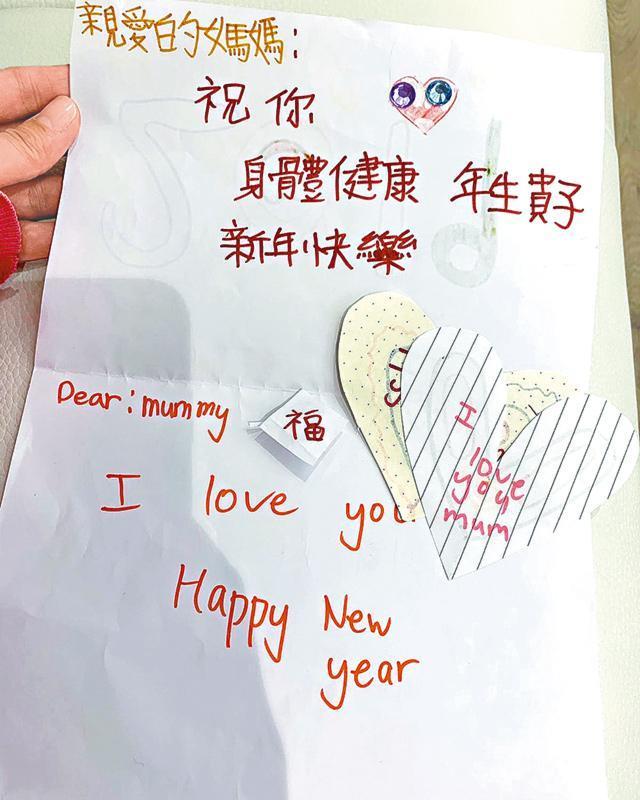 親愛的媽媽:
祝你
身體健康 年生貴子
新年快樂
Dear: mummy
福
I love you
I
love
you
mum
Happy New
year